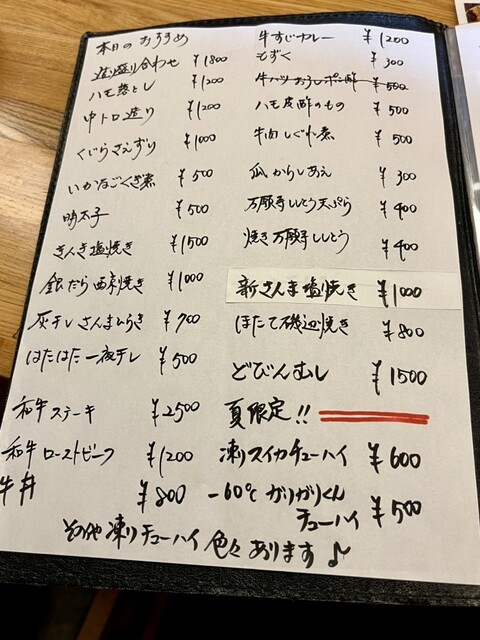 本日のおすすめ
造り盛り合わせ ¥1800
ハモ落とし ¥1200
中トロ造り ¥1200
くじらさえずり ¥1000
いかなごくぎ煮 ¥500
明太子 ¥500
きんき塩焼き ¥1500
銀だら西京焼き ¥1000
灰干しさんまひらき ¥700
はたはた一夜干し ¥500
和牛ステーキ ¥2500
和牛ローストビーフ ¥1200
牛丼 ¥800
牛すじカレー ¥1200
もずく ¥300
牛ハツおろしポン酢 ¥500
ハモ皮酢のもの ¥500
牛肉しぐれ煮 ¥500
瓜からしあえ ¥300
万願寺ししとう天ぷら ¥400
焼き万願寺ししとう ¥400
新さんま塩焼き ¥1000
ほたて磯辺焼き ¥800
どびんむし ¥1500
夏限定!!
凍りスイカチューハイ ¥600
-60℃ ガリガリくん
チューハイ ¥500
その他 凍りチューハイ 色々あります♪